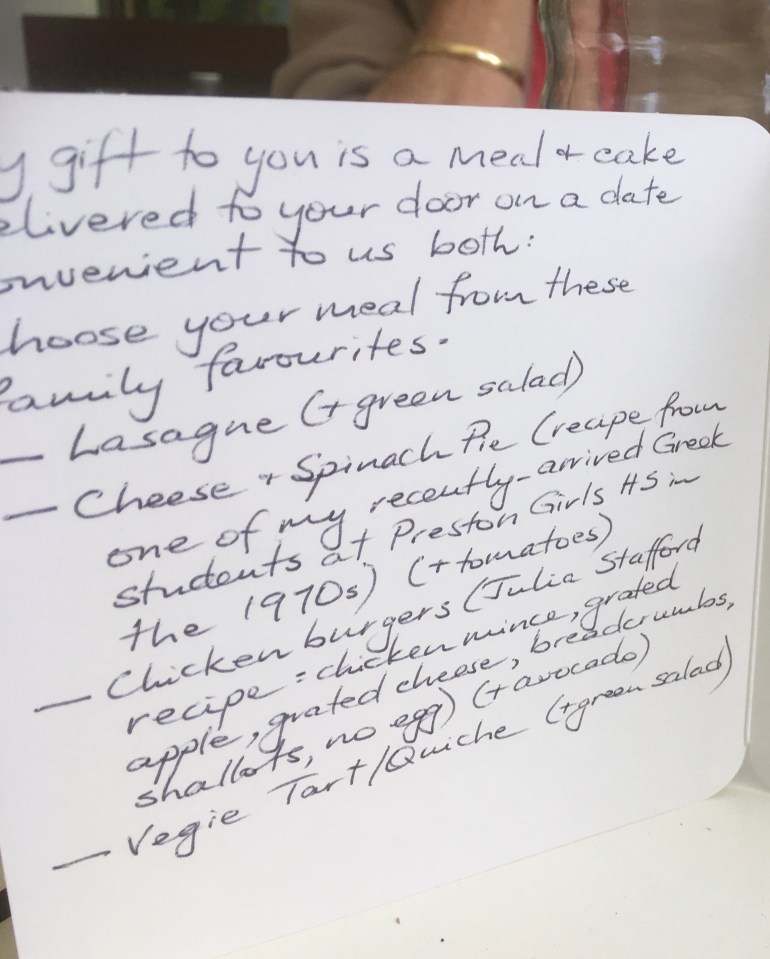 y gift to you is a meal + cake
elivered to your door on a date
onvenient to us both:
hoose your meal from these
family favourites.
— Lasagne (+ green salad)
— Cheese + Spinach Pie (recipe from
one of my recently-arrived Greek
students at Preston Girls HS in
the 1970s) (+ tomatoes)
— Chicken burgers (Julia Stafford
recipe: chicken mince, grated
apple, grated cheese, breadcrumbs,
shallots, no egg) (+ avocado)
— Vegie Tart/Quiche (+ green salad)